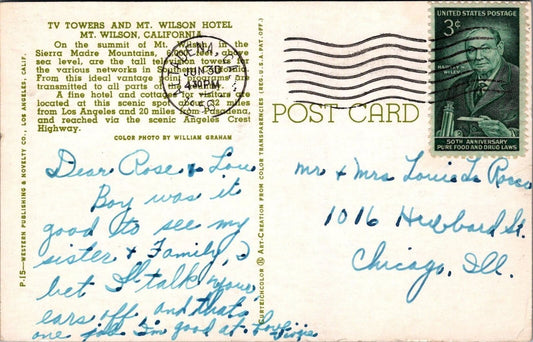 TV TOWERS AND MT. WILSON HOTEL
MT. WILSON, CALIFORNIA
On the summit of Mt. Wilson, in the
Sierra Madre Mountains, feet above
sea level, are the tall television towers for
the various networks in Southern California.
From this ideal vantage point programs are
transmitted to all parts of the
A fine hotel and cottages for visitors are
located at this scenic spot about 32 miles
from Los Angeles and 20 miles from Pasadena,
and reached via the scenic Angeles Crest
Highway.
COLOR PHOTO BY WILLIAM GRAHAM
P.15—WESTERN PUBLISHING & NOVELTY CO., LOS ANGELES, CALIF.
JUN 30
4 PM
Dear Rose & Lou
Boy was it
good to see my
sister & Family, I
bet I talk your
ears off and thats
one job I'm good at. Love
CURTEICHCOLOR ® ART-CREATION FROM COLOR TRANSPARENCIES (REG. U.S.A. PAT. OFF.)
POST CARD
UNITED STATES POSTAGE
3¢
HARVEY W.
WILEY
50TH ANNIVERSARY
PURE FOOD AND DRUG LAWS
Mr & Mrs Louis La Rocco
1016 Hubbard St.
Chicago, Ill.